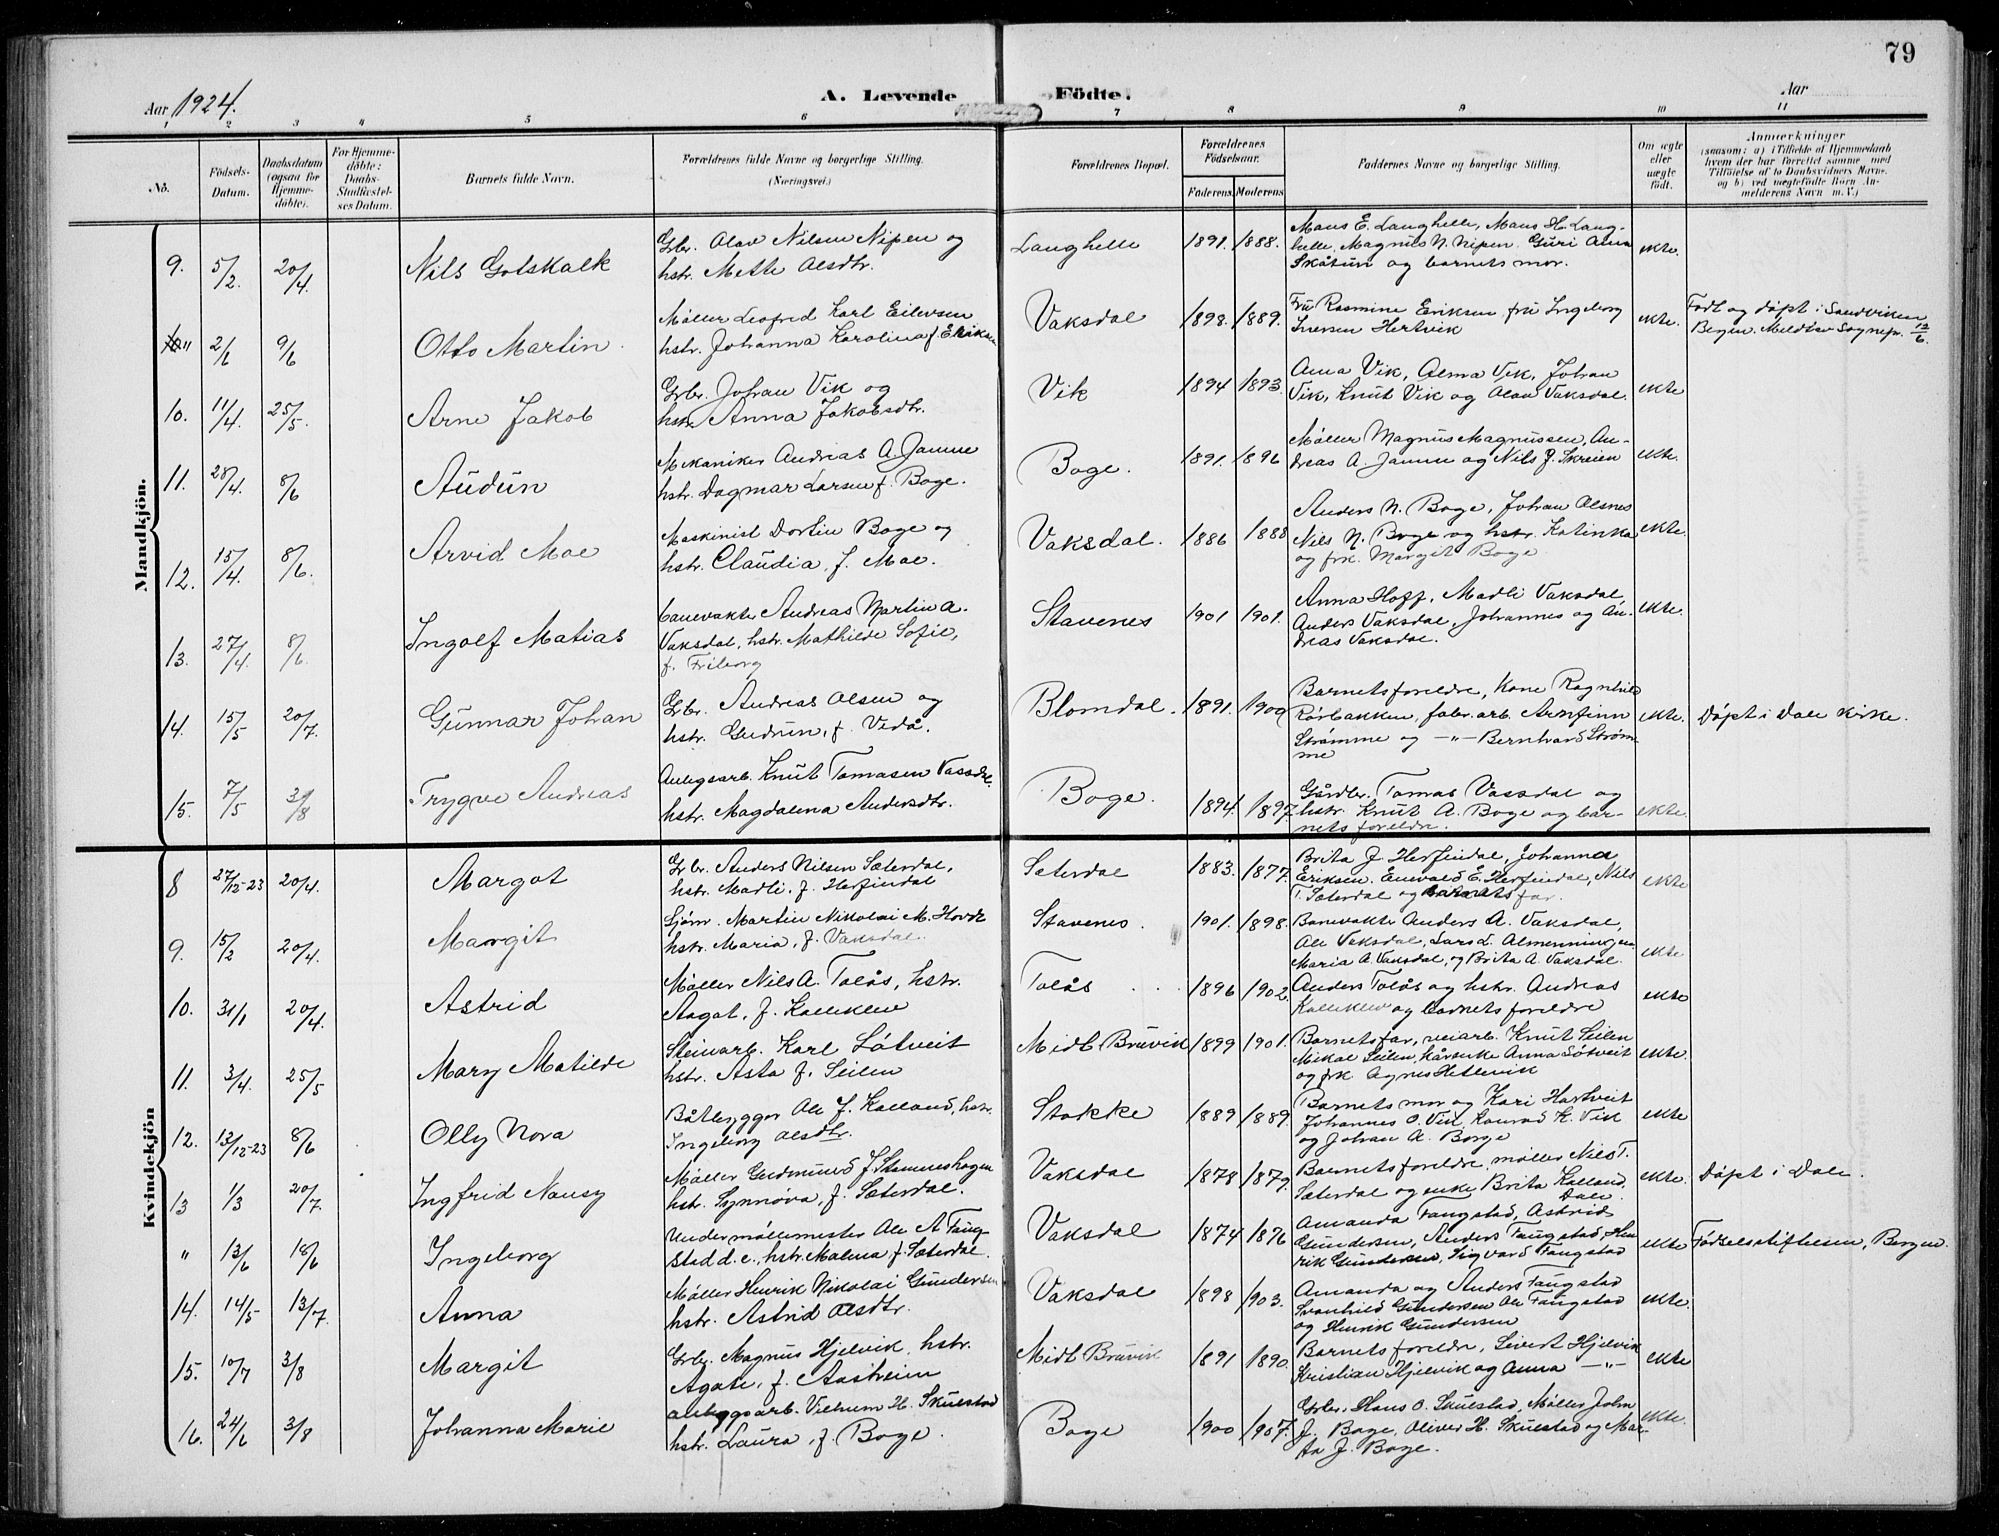 79
Aar 1924.
A. Levende Födte.
Aar
1 2 3 4 5 6 7 8 9 10 11
No.
Födsels-Datum.
Daabsdatum (ogsaa for Hjemme-döbte).
For Hjemme-döbte: Daabs-Stadfæstel-ses Datum.
Barnets fulde Navn.
Forældrenes fulde Navne og borgerlige Stilling.
(Næringsvei.)
Forældrenes Bopæl.
Forældrenes Födselsaar.
Faderens. Moderens.
Faddernes Navne og borgerlige Stilling.
Om ægte eller uægte födt.
Anmærkninger
(saasom: a) i Tilfælde af Hjemmedaab hvem der har forrettet samme med Tilföielse af to Daabsvidners Navne, og b) ved uægtefödte Börn An-melderens Navn m. V.)
Mandkjön.
9. 5/2 20/4 Nils Gotskalk
Grbr. Olav Nilsen Nipen og
hstr. Mette Olsdtr.
Langhelle 1891. 1888.
Mons E. Langhelle, Mons H. Lang-
helle, Magnus N. Nipen. Guri Anna
Skåtun og barnets mor.
ekte.
" 2/6 9/6 Otto Martin
Møller Leofred Karl Eilevsen
hstr. Johanna Karolina f. Eriksen
Vaksdal 1898. 1889.
Fru Rasmine Eriksen fru Ingeborg
Iversen Hertvik
ekte.
Født og døpt i Sandviken
Bergen. Meldt av Sognepr. 12/6
10. 11/4 25/5. Arne Jakob
Grbr. Johan Vik og
hstr. Anna Jakobsdtr.
Vik 1894 1893.
Anna Vik, Alma Vik, Johan
Vik, Knut Vik og Olav Vaksdal.
ekte
11. 28/4. 8/6 Audun
Mekaniker Andreas A. Jamne
hstr. Dagmar Larsen f. Boge.
Boge. 1891. 1896
Møller Magnus Magnussen, An-
dreas A. Jamne og Nils J. Skreien
ekte.
12. 15/4 8/6. Arvid Moe
Maskinist Dortin Boge og
hstr. Claudia, f. Moe.
Vaksdal. 1886 1888
Anders N. Boge, Johan Olsnes
Nils N. Boge og hstr. Katinka
og frk. Margit Boge
ekte.
13. 27/4. 8/6. Ingolf Matias
banevakter Andreas Martin A.
Vaksdal, hstr. Mathilde Sofie,
f. Friborg
Stavenes 1901 1901.
Anna Hoff, Madli Vaksdal,
Anders Vaksdal, Johannes og An-
dreas Vaksdal.
ekte.
14. 15/5 20/7. Gunnar Johan
Grbr. Andreas Olsen og
hstr. Gudrun, f. Vedå.
Blomdal. 1891. 1900
Barnets foreldre, Kone Ragnhild
Rørbakken, fabr. arb. Arnfinn
Strømme og —"— Bernhard Strøm-
me
ekte.
Døpt i Dale kirke.
15. 7/5 3/8 Trygve Andreas
Anlegsarb. Knut Tomasen Vassdal
hstr. Magdalena Andersdtr.
Boge. 1894. 1897.
Gårdbr. Tomas Vassdal og
hstr. Knut A. Boge og bar-
nets foreldre.
ekte.
Kvindekjön
8 27/12-23 20/4. Margot
Grbr. Anders Nilsen Sæterdal,
hstr. Madli, f. Herfindal
Sæterdal 1883. 1877.
Brita J. Herfindal, Johanna
Eriksen, Enevald E. Herfindal, Nils
T. Sæterdal og barnets far.
ekte
9. 15/2 20/4. Margit
Sjøm. Martin Nikolai M. Hovde
hstr. Maria, f. Vaksdal.
Stavenes. 1901. 1898.
Banevakter Anders A. Vaksdal,
Ole Vaksdal, Lars L. Almenningen
Maria A. Vaksdal, og Brita A. Vaksdal.
ekte
10. 31/1 20/4 Astrid
Møller Nils A. Tolås, hstr.
Aagot, f. Kallekleiv
Tolås 1896 1902.
Anders Tolås og hstr. Andreas
Kallekleiv og barnets foreldre
ekte
11. 3/4. 25/5 Mary Matilde
Steinarb. Karl Låtveit
hstr. Asta f. Seilen
Midt. Bruvik 1899 1901.
Barnets far, veiarb. Knut Seilen
Mikal Seilen, Anna Låtveit
og frk. Agnes Hetlevik
ekte.
12. 13/12-23 8/6 Olly Nora
Båtbygger Ole J. Kalland, hstr.
Ingeborg Olsdtr.
Stokke 1889 1889.
Barnets mor og Kari Hartveit
Johannes O. Vik, Konrad K. Vik
og Johan A. Borge
ekte
13 1/3 20/7. Ingfrid Nausy
Møller Gudmund J. Stamneshagen
hstr. Synnøva, f. Sæterdal.
Vaksdal 1878 1879.
Barnets foreldre, møller Nils T.
Sæterdal og enke Brita Kalland,
Dale
ekte.
Døpt i Dale.
" 13/6 18/6 Ingeborg
Undermøllemester Ole A Faug-
stad d.e., hstr. Malma f. Sæterdal.
Vaksdal 1874 1876
Amanda Faugstad, Astrid
Gundersen, Anders Faugstad, Hen-
rik Gundersen, Sigvard Faugstad
ekte
Fødselsstiftelsen, Bergen.
14. 14/5 13/7. Anna
Møller Henrik Nikolai Gundersen
hstr. Astrid Olsdtr.
Vaksdal 1898 1903.
Amanda og Anders Faugstad
Svanhild Gundersen Ole Faugstad
og Henrik Gundersen
ekte.
15. 10/7 3/8 Margit
Grbr. Magnus Hjelvik, hstr.
Agate, f. Aastveim
Midt. Bruvik 1891 1890.
Barnets foreldre, Sivert Hjelvik
Kristian Hjelvik og Anna —"—
ekte
16. 24/6 3/8 Johanna Marie
anleggsarb. Vilhelm H. Skulstad
hstr. Laura, f. Boge.
Boge 1900 1907.
Grbr. Hans O. Skulstad, Møller John
J. Boge, Oliver H. Skulstad og Mar-
ta J. Boge.
ekte.